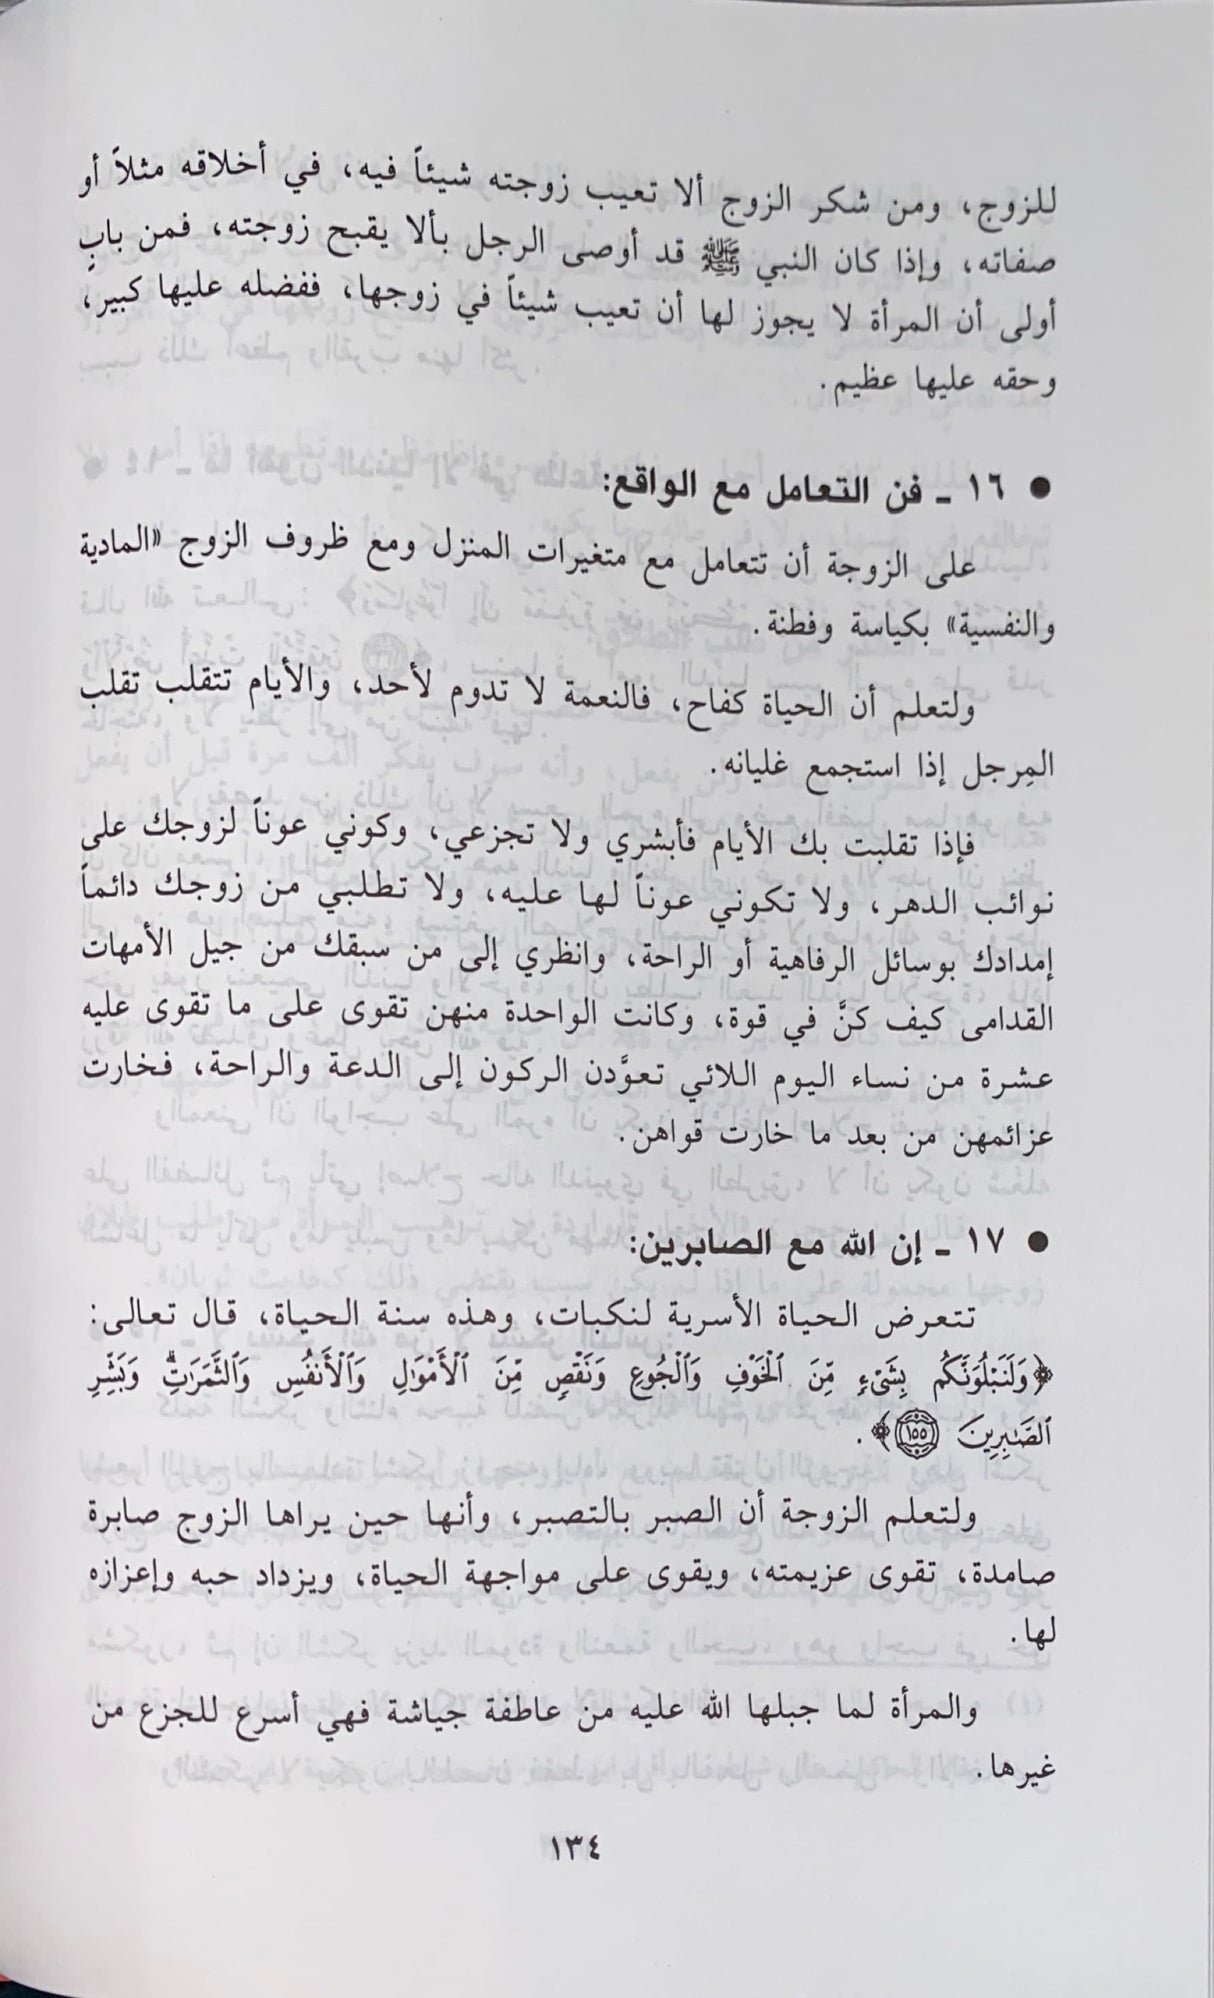 للزوج، ومن شكر الزوج ألا تعيب زوجته شيئاً فيه، في أخلاقه مثلاً أو
صفاته، وإذا كان النبي ﷺ قد أوصى الرجل بألا يقبح زوجته، فمن بابٍ
أولى أن المرأة لا يجوز لها أن تعيب شيئاً في زوجها، ففضله عليها كبير،
وحقه عليها عظيم.
● ١٦ - فن التعامل مع الواقع:
على الزوجة أن تتعامل مع متغيرات المنزل ومع ظروف الزوج «المادية
والنفسية» بكياسة وفطنة.
ولتعلم أن الحياة كفاح، فالنعمة لا تدوم لأحد، والأيام تتقلب تقلب
المِرجل إذا استجمع غليانه.
فإذا تقلبت بك الأيام فأبشري ولا تجزعي، وكوني عوناً لزوجك على
نوائب الدهر، ولا تكوني عوناً لها عليه، ولا تطلبي من زوجك دائماً
إمدادك بوسائل الرفاهية أو الراحة، وانظري إلى من سبقك من جيل الأمهات
القدامى كيف كنَّ في قوة، وكانت الواحدة منهن تقوى على ما تقوى عليه
عشرة من نساء اليوم اللائي تعوَّدن الركون إلى الدعة والراحة، فخارت
عزائمهن من بعد ما خارت قواهن.
● ١٧ - إن الله مع الصابرين:
تتعرض الحياة الأسرية لنكبات، وهذه سنة الحياة، قال تعالى:
﴿وَلَنَبْلُوَنَّكُم بِشَىْءٍ مِّنَ ٱلْخَوْفِ وَٱلْجُوعِ وَنَقْصٍ مِّنَ ٱلْأَمْوَٰلِ وَٱلْأَنفُسِ وَٱلثَّمَرَٰتِ ۗ وَبَشِّرِ
ٱلصَّـٰبِرِينَ ١٥٥﴾.
ولتعلم الزوجة أن الصبر بالتصبر، وأنها حين يراها الزوج صابرة
صامدة، تقوى عزيمته، ويقوى على مواجهة الحياة، ويزداد حبه وإعزازه
لها.
والمرأة لما جبلها الله عليه من عاطفة جياشة فهي أسرع للجزع من
غيرها.
١٣٤